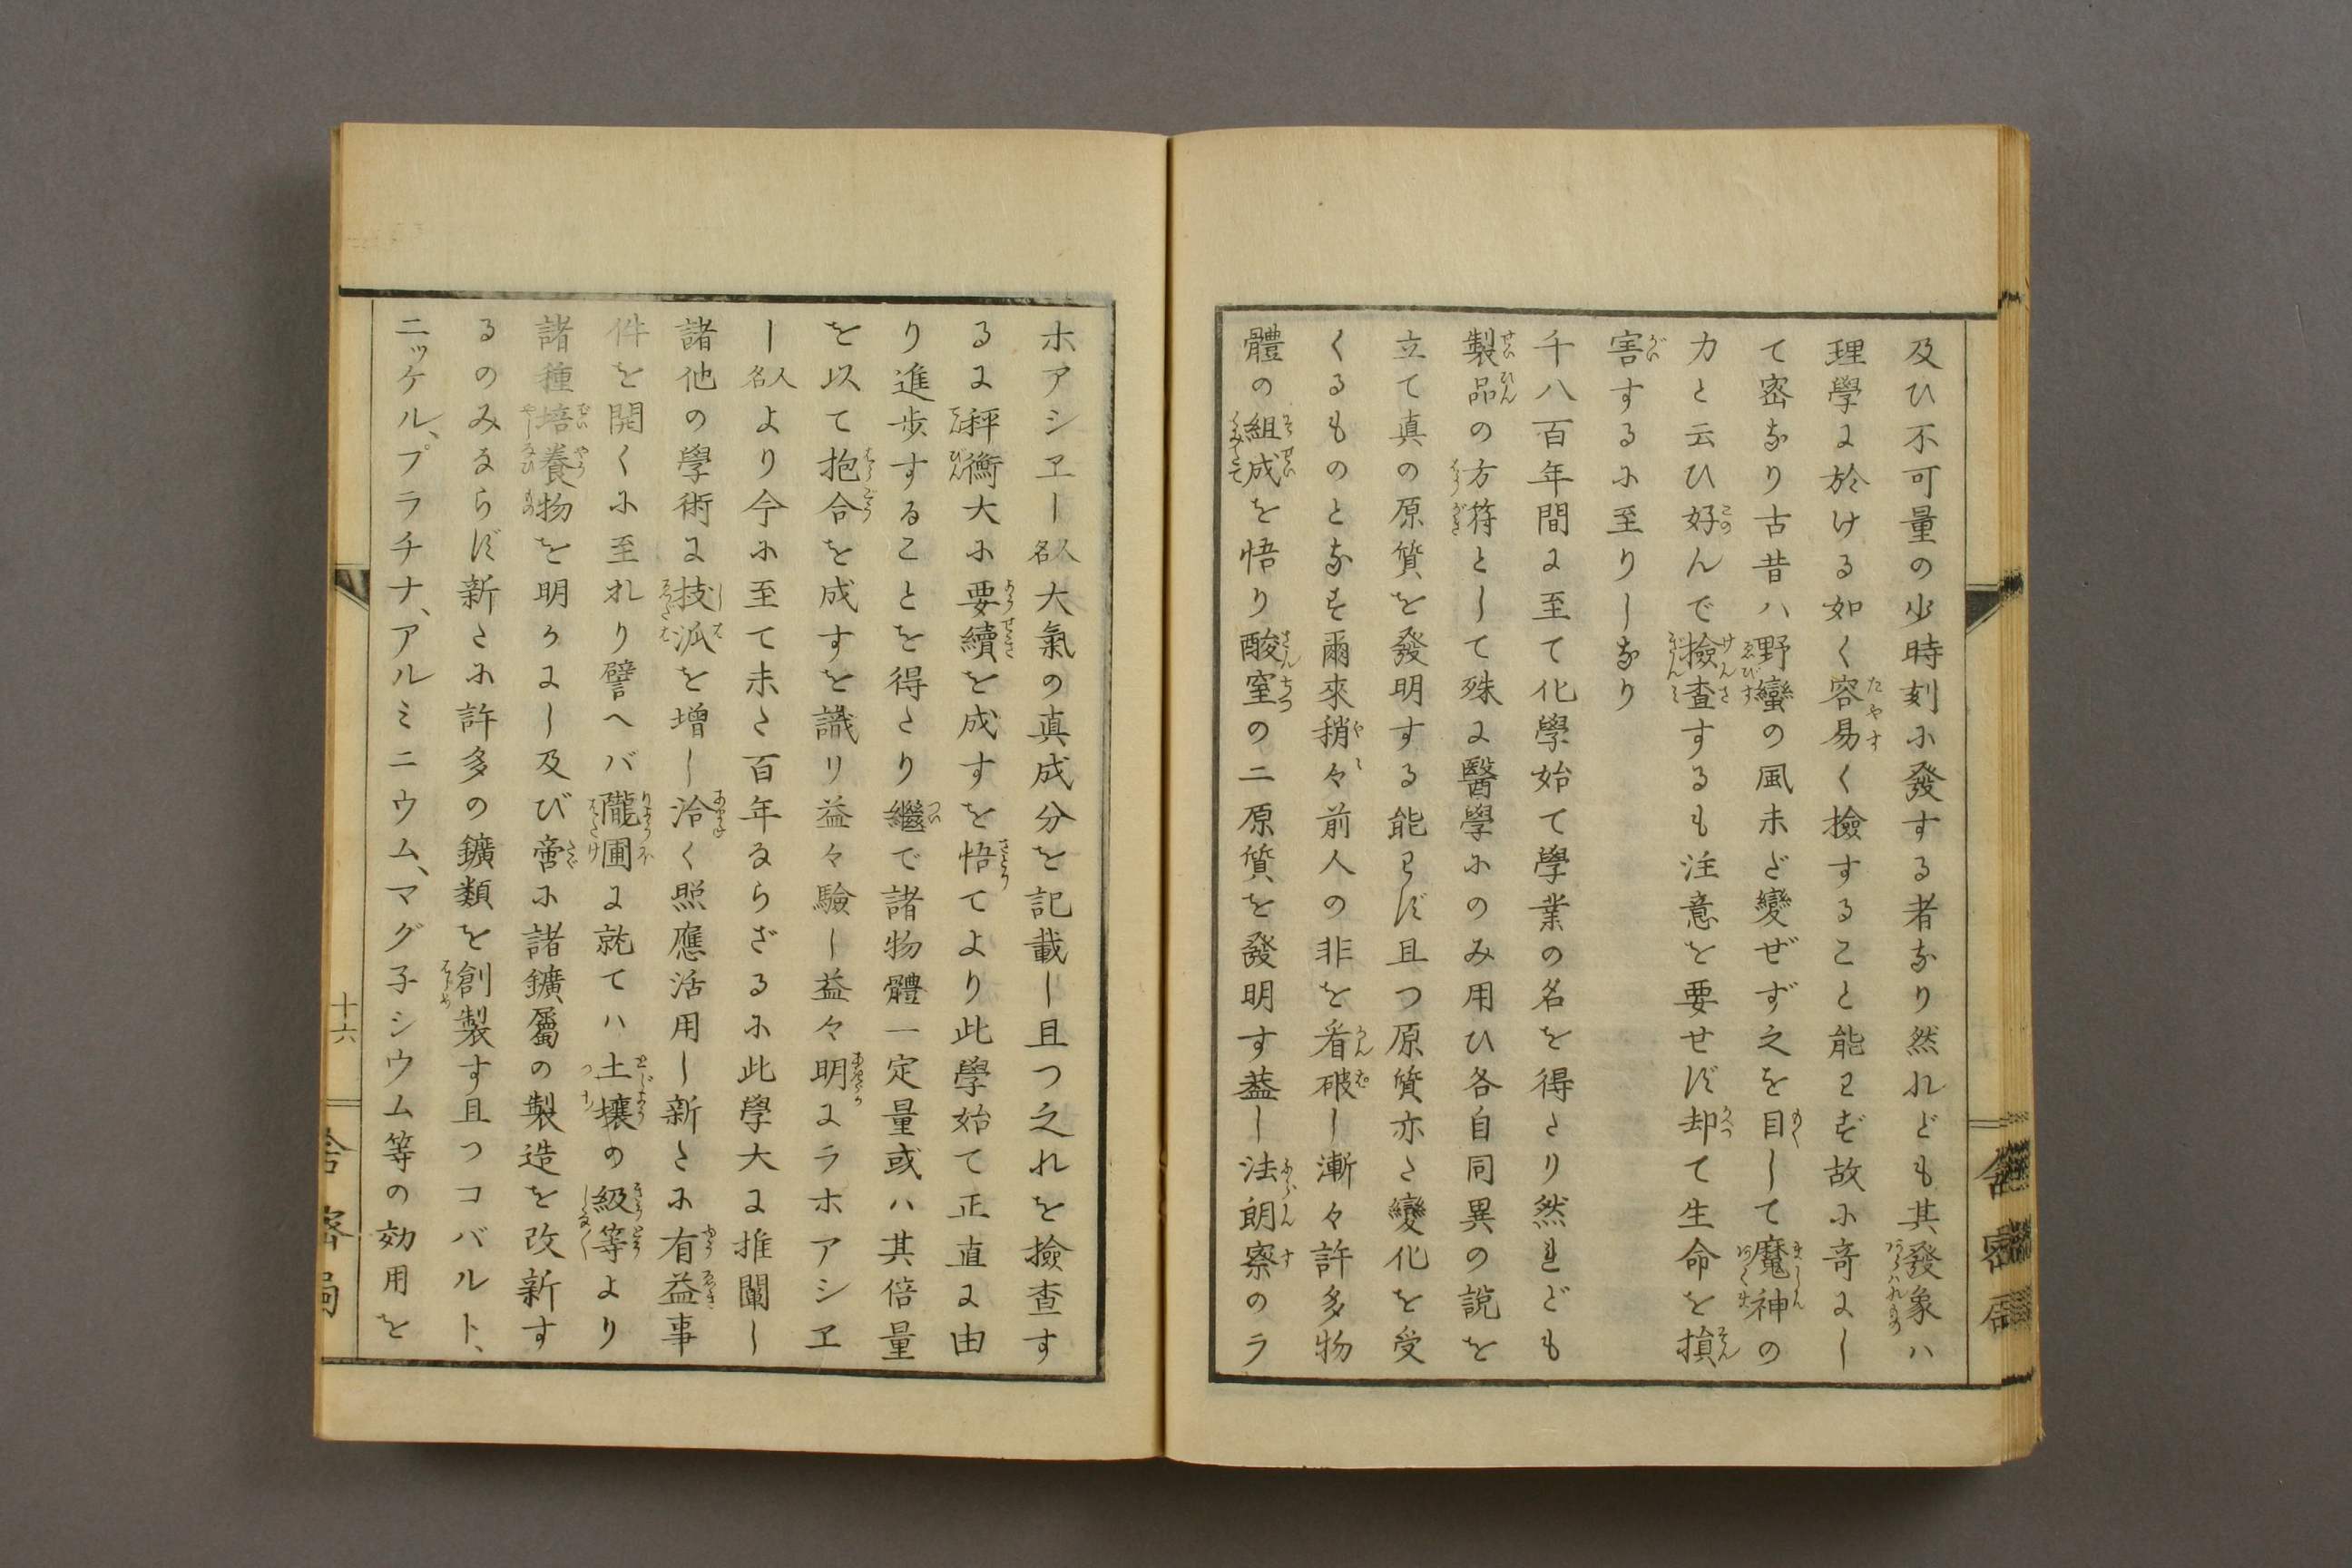 及ひ不可量の少時刻に發する者なり然れども其發象ハ
理學に於ける如く容易く撿すること能ハず故に奇にし
て密なり古昔ハ野蠻の風未だ變ぜず之を目して魔神の
力と云ひ好んで撿査するも注意を要せず却て生命を損
害するに至りしなり
千八百年間に至て化學始て學業の名を得たり然れども
製品の方符として殊に醫學にのみ用ひ各自同異の說を
立て真の原質を發明する能ハず且つ原質亦た變化を受
くるものとなす爾來稍々前人の非を看破し漸々許多物
體の組成を悟り酸窒の二原質を發明す葢し法朗察のラ
ホアシエー人名大氣の真成分を記載し且つ之れを撿査す
るに秤衡大に要續を成すを悟てより此學始て正直に由
り進歩することを得たり繼で諸物體一定量或ハ其倍量
を以て抱合を成すを識り益々驗し益々明にラホアシエ
ー人名より今に至て未た百年ならざるに此學大に推闡し
諸他の學術に技泒を增し洽く照應活用し新たに有益事
件を開くに至れり譬へバ隴圃に就てハ土壤の級等より
諸種培養物を明かにし及び啻に諸鑛屬の製造を改新す
るのみならず新たに許多の鑛類を創製す且つコバルト、
ニッケル、プラチナ、アルミニウム、マグ子シウム等の効用を
十六
舎密局
舎密局